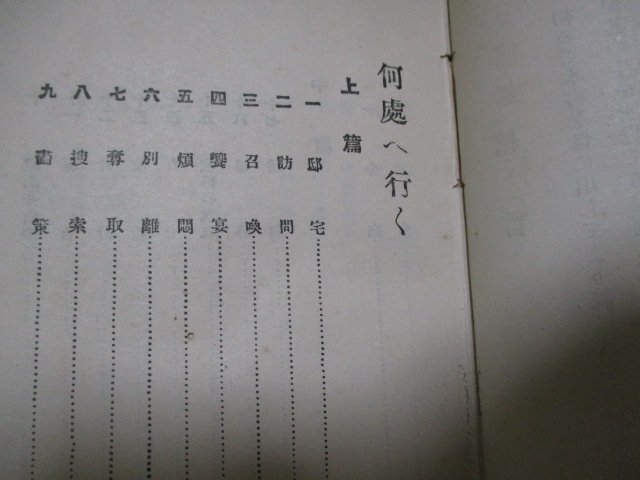 何處へ行く
上篇
一 邸宅
二 訪問
三 召喚
四 饗宴
五 煩悶
六 別離
七 奪取
八 搜索
九 畫策